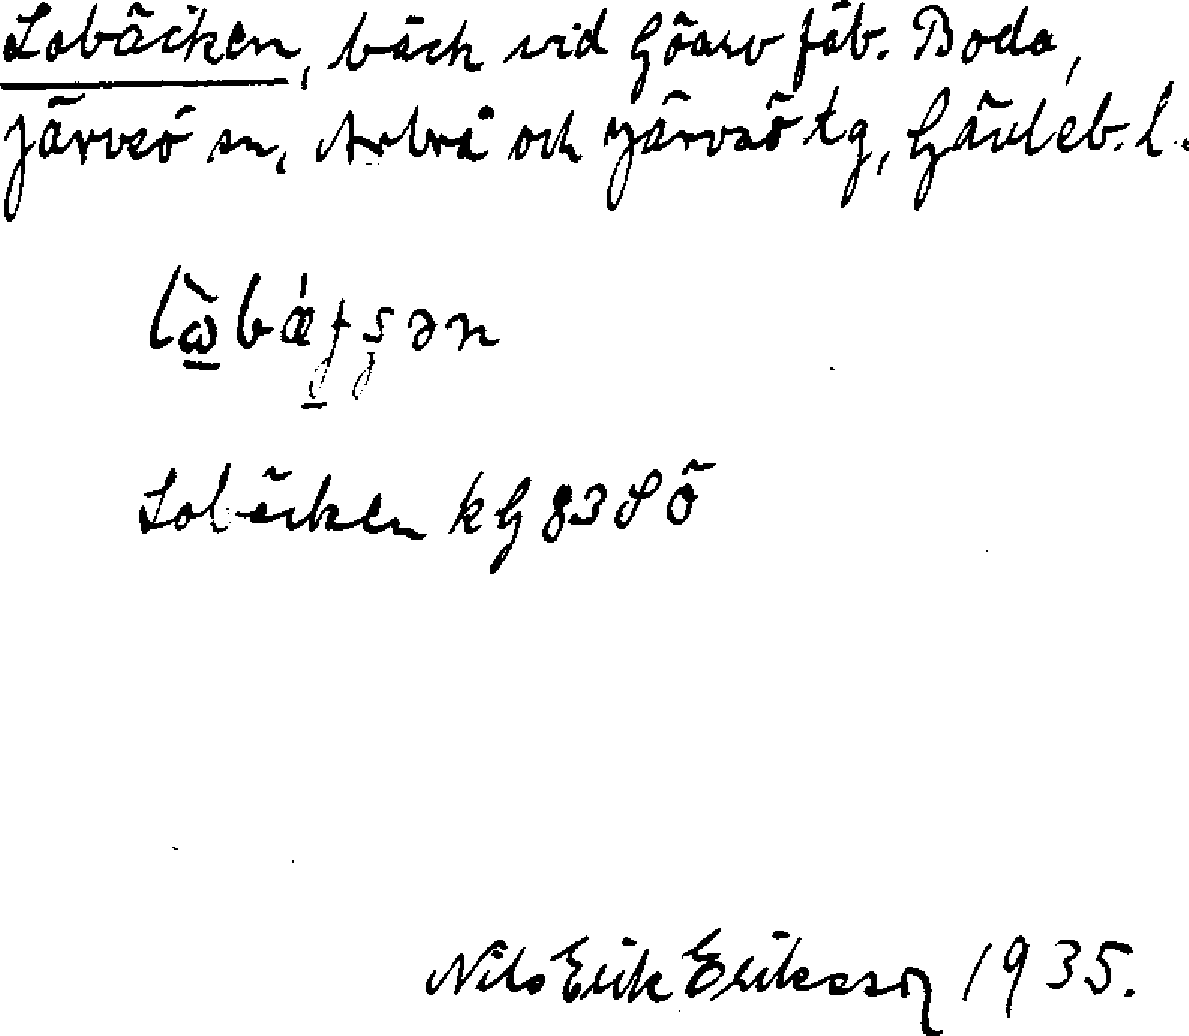 Lobäcken, bäck vid Göarv fäb. Boda,
Järvsö sn, Arbrå och Järvsö tg, Gävleb. l.
Lobäcken kG 83 SÖ
Nils Erik Eriksson 1935.